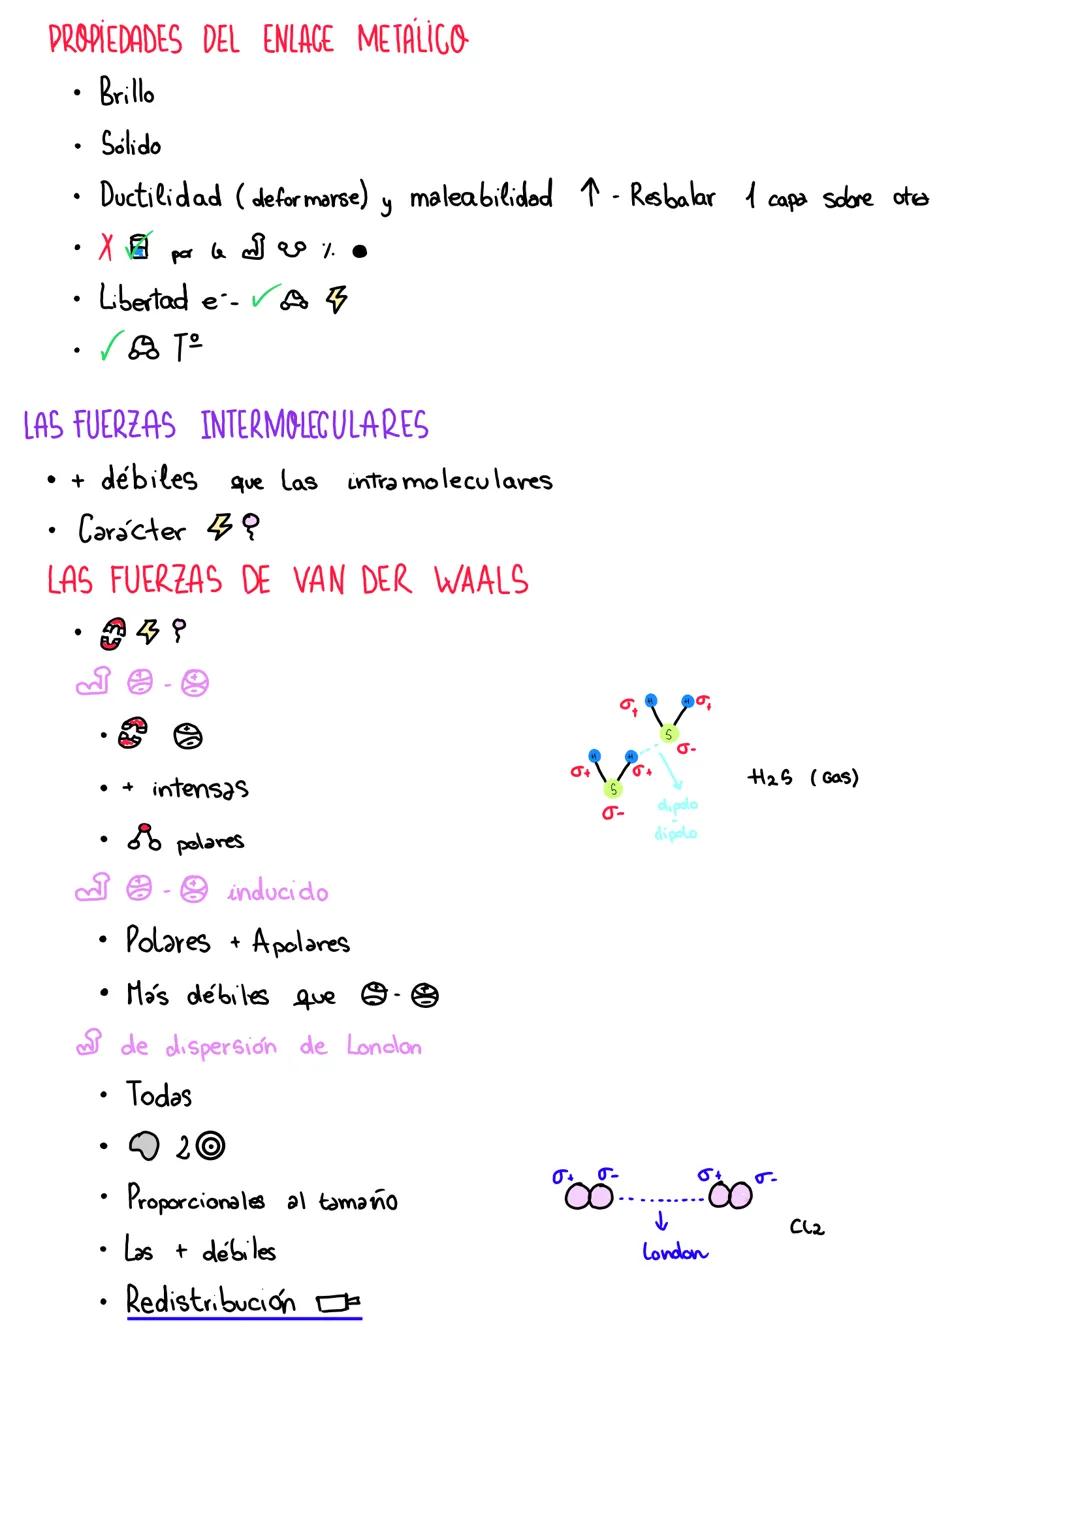 PROPIEDADES DEL ENLACE METÁLICO
• Brillo
• Sólido
• Ductilidad (deformarse) y maleabilidad ↑ - Resbalar 1 capa sobre otra
• X ✓ por la %. ●
• Libertad e⁻ - ✓
• ✓ Tº
LAS FUERZAS INTERMOLECULARES
• + débiles que las intramoleculares
• Carácter
LAS FUERZAS DE VAN DER WAALS
•
-
•
• + intensas
• polares
σ+ H H σ+
S
σ-
H H
σ+ σ+
S
σ-
dipolo
-
dipolo
H2S (Gas)
- inducido
• Polares + Apolares
• Más débiles que -
de dispersión de London
• Todas
• 2
• Proporcionales al tamaño
• Las + débiles
• Redistribución
σ+ σ- σ+ σ-
London
Cl2